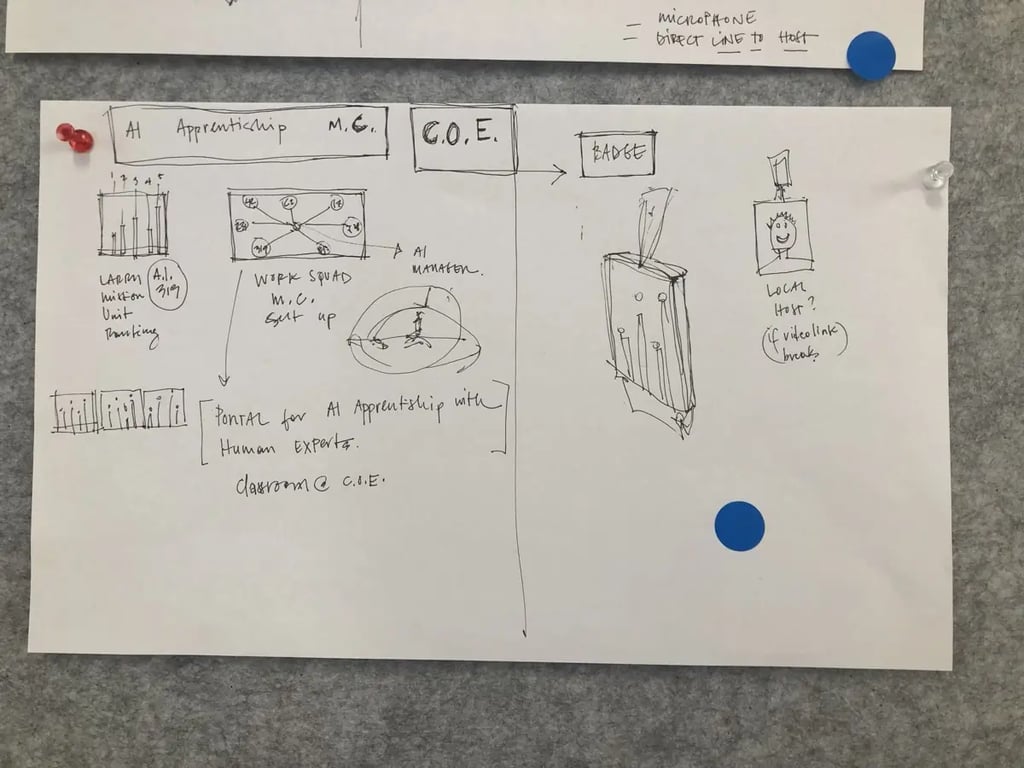 = MICROPHONE
= DIRECT LINE TO HOST
AI Apprenticship M.C.
C.O.E.
BADGE
1 2 3 4 5
LARRY
A.I.
319
Unit
WORK SQUAD
M.C.
set up
AI
MANAGER.
LOCAL
HOST?
(if videolink
breaks)
[PORTAL for AI Apprentship with
Human Experts.]
classroom @ C.O.E.